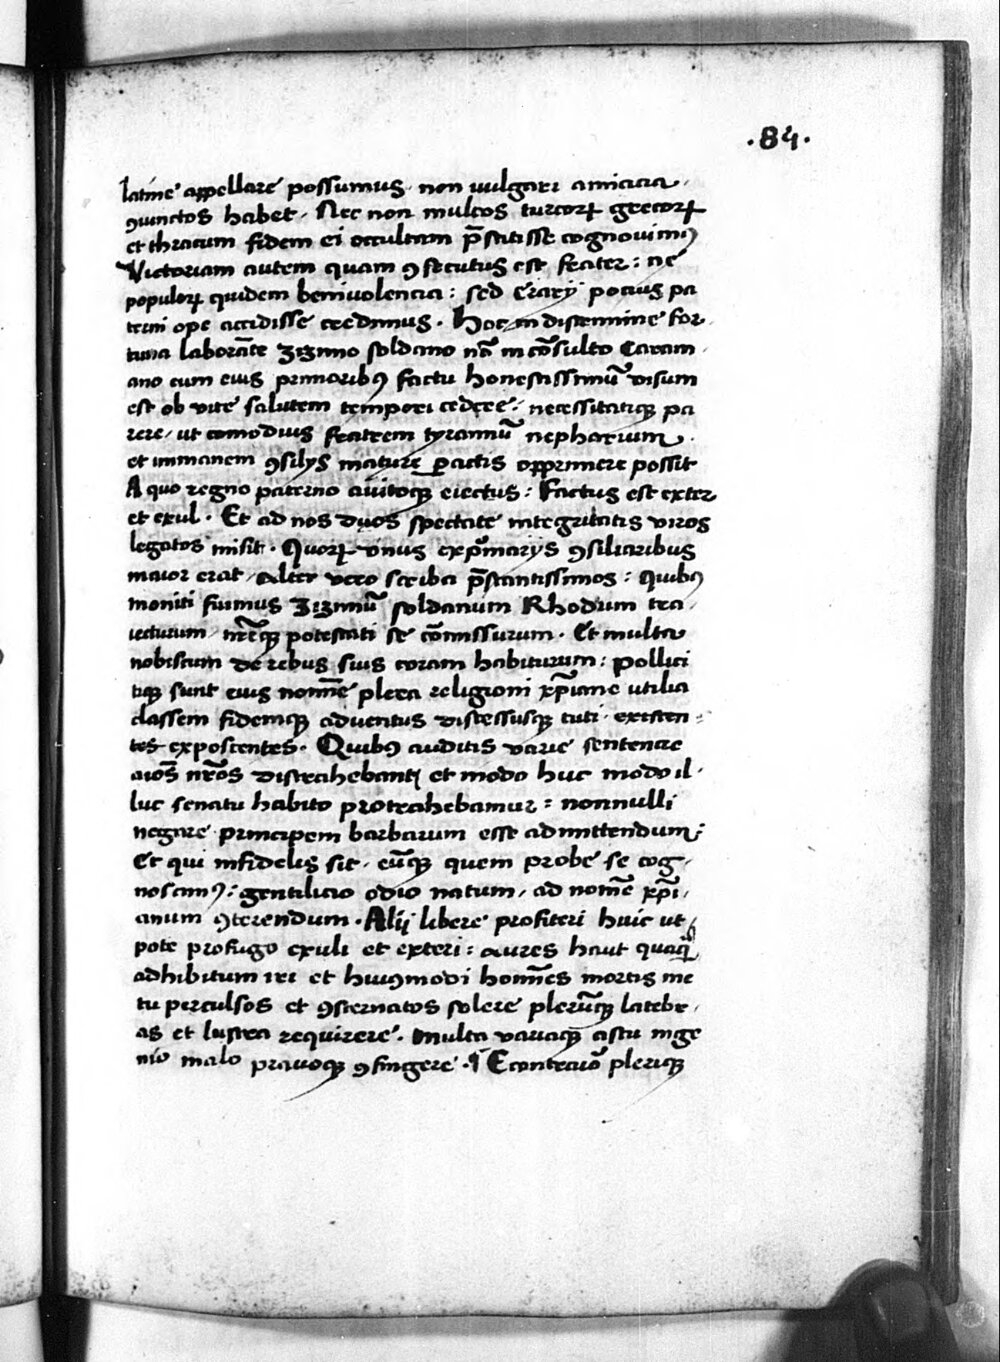 ·84·
latine appellare possumus· non uulgari amicicia·
ꝯiunctos habet· Nec non multos turcoꝝ grecoꝝ
et thracum fidem ei occultam p̄stitisse cognouimꝰ
Victoriam autem quam ꝯsecutus est frater: ne
populoꝝ quidem beniuolencia: sed Erarij pocius pa
terni ope accidisse credimus· Hoc in discrimine for·
tuna laborāte Zizimo soldano nō incōsulto Caram·
ano cum eius primoribꝰ factu honestissimū uisum
est ob vite salutem tempori cedere: necessitatiqꝫ pa
rere/ ut comodius fratrem tyrannū nepharium·
et immanem ꝯsilijs mature ꝑactis opprimere possit
A quo regno paterno auitoqꝫ eiectus: Factus est exter
et exul· Et ad nos duos spectate integritatis viros
legatos misit· Quoꝝ vnus ex p̓marijs ꝯsiliaribus
maior erat/ alter vero scriba p̄stantissimos: Quibꝰ
moniti fuimus Zizimū soldanum Rhodum tra·
iecturum/ nr̄eqꝫ potestati se cōmissurum· Et multa
nobiscum de rebus suis coram habiturum: Pollici
tiqꝫ sunt eius noīne plera religioni xp̄iane utilia
classem fidemqꝫ aduentus discessusqꝫ tuti· existen=
tes exposcentes· Quibꝰ auditis varie sentencie
aīos nr̄os distrahebant et modo huc modo il·
luc senatu habito protrahebamur: nonnulli
negare principem barbarum esse admittendum:
Et qui infidelis sit· eūqꝫ quem probe se cog·
noscimꝰ: gentilicio odio natum/ ad nomē xp̄i·
anum ꝯterendum· Alij libere profiteri huic ut
pote profugo exuli et exteri: aures haut quaqꝫ
adhibitum iri et huiꝰmodi homīes mortis me
tu perculsos et ꝯsternatos solere plerūqꝫ latebr·
as et lustra requirere· multa variaqꝫ astu inge
nio malo prauoqꝫ ꝯfingere· ¶ Econtrario pleriqꝫ